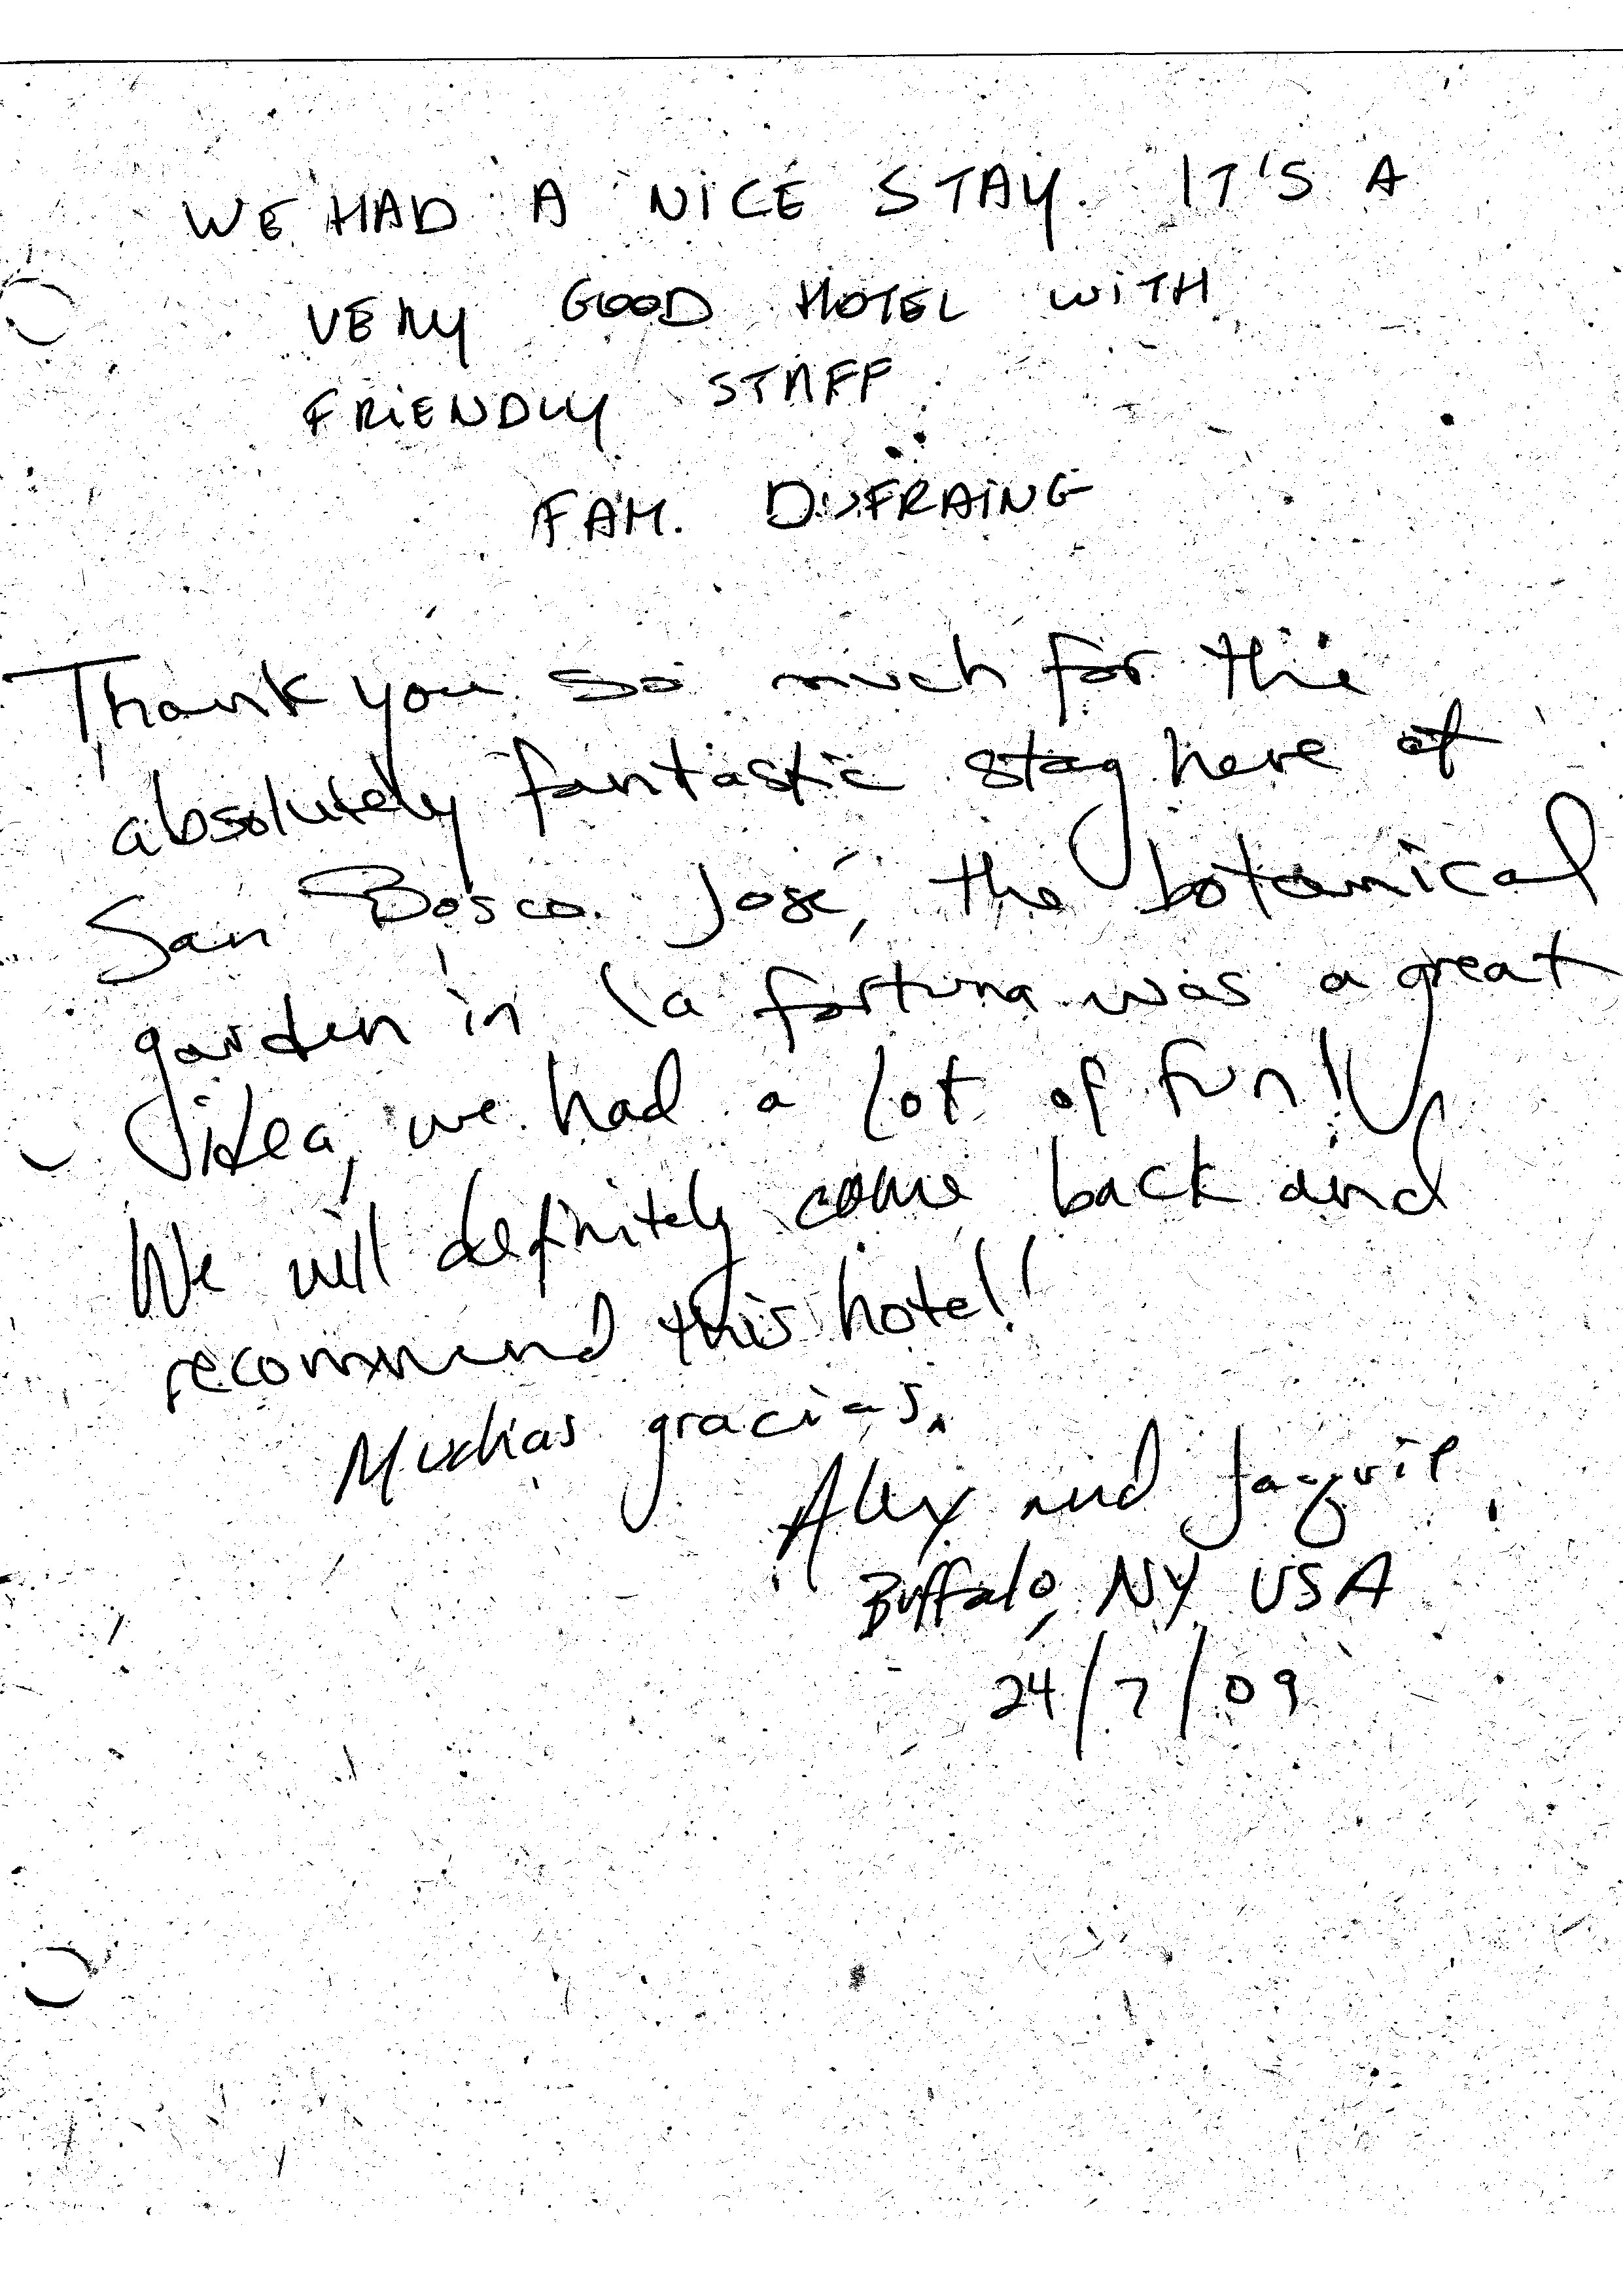 WE HAD A NICE STAY. IT'S A
VERY GOOD HOTEL WITH
FRIENDLY STAFF
FAM. DUFRAING
Thank you so much for the
absolutely fantastic stay here at
San Bosco. José, the botanical
garden in la fortuna was a great
idea, we had a lot of fun!
We will definitely come back and
recommend this hotel!
Muchas gracias.
Alex and Jaquie
Buffalo, NY USA
24/7/09